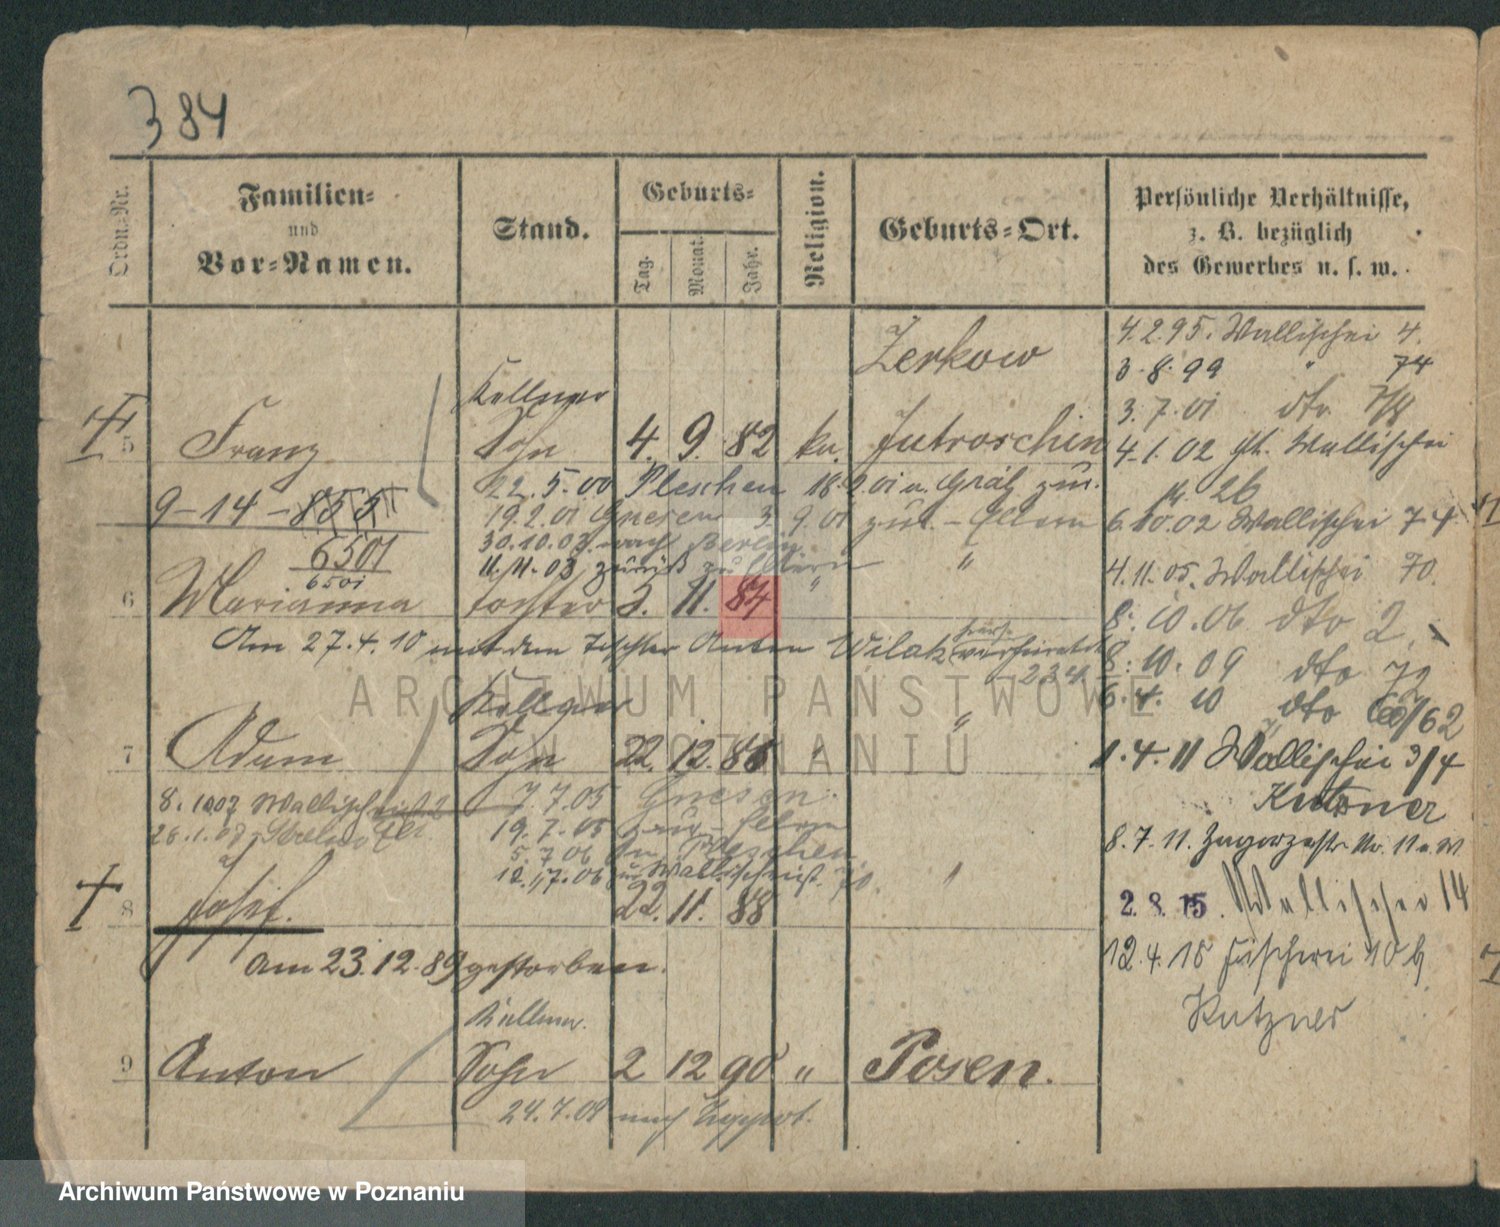 384
Ordn.-Nr.
Familien-
und
Vor-Namen.
Stand.
Geburts-
Tag.
Monat.
Jahr.
Religion.
Geburts-Ort.
Persönliche Verhältnisse,
z. B. bezüglich
des Gewerbes u. s. w.
Zerkow
4.2.95. Wallischei 4.
3.8.99 " 74
3.7.01 dto
Kellner
5 Franz Sohn 4. 9. 82 ka. Jutroschin
4.1.02 Wallischei
26
22.5.00 Pleschen 18.2.01 u. Grätz zur.
9-14-
19.2.01 Gnesen 3.9.01 zur. - Eltern
6.10.02 Wallischei 74
6501
6501
30.10.03 nach Berlin "
11.11.03 zurück zu Eltern
4.11.05. Wallischei 70.
6 Marianna Tochter 3. 11. 84. "
8.10.06 dto 2
Am 27.4.10 mit dem Tischler Anton Wilak verheiratet
8.10.09 dto 72
6.4.10 dto 62
Kellner
7 Adam Sohn 22. 12. 86 " "
1.4.11 Wallischei 3/4
Kutzner
8.10.07 Wallischei 2
7.7.05 Gnesen.
26.1.08
19.7.05 zur - Eltern
5.7.06 Pleschen
12.7.06 Wallischei 70.
8.7.11. Zagorzestr No. 11
8 Josef. 22. 11. 88 "
2.8.15. Wallischei 14
Am 23.12.89 gestorben.
12.4.15 Fischerei 10 b
Kutzner
Kellner.
9 Anton Sohn 2 12 90 " Posen.
24.7.09 nach Zoppot.
ARCHIWUM PAŃSTWOWE
W POZNANIU
Archiwum Państwowe w Poznaniu